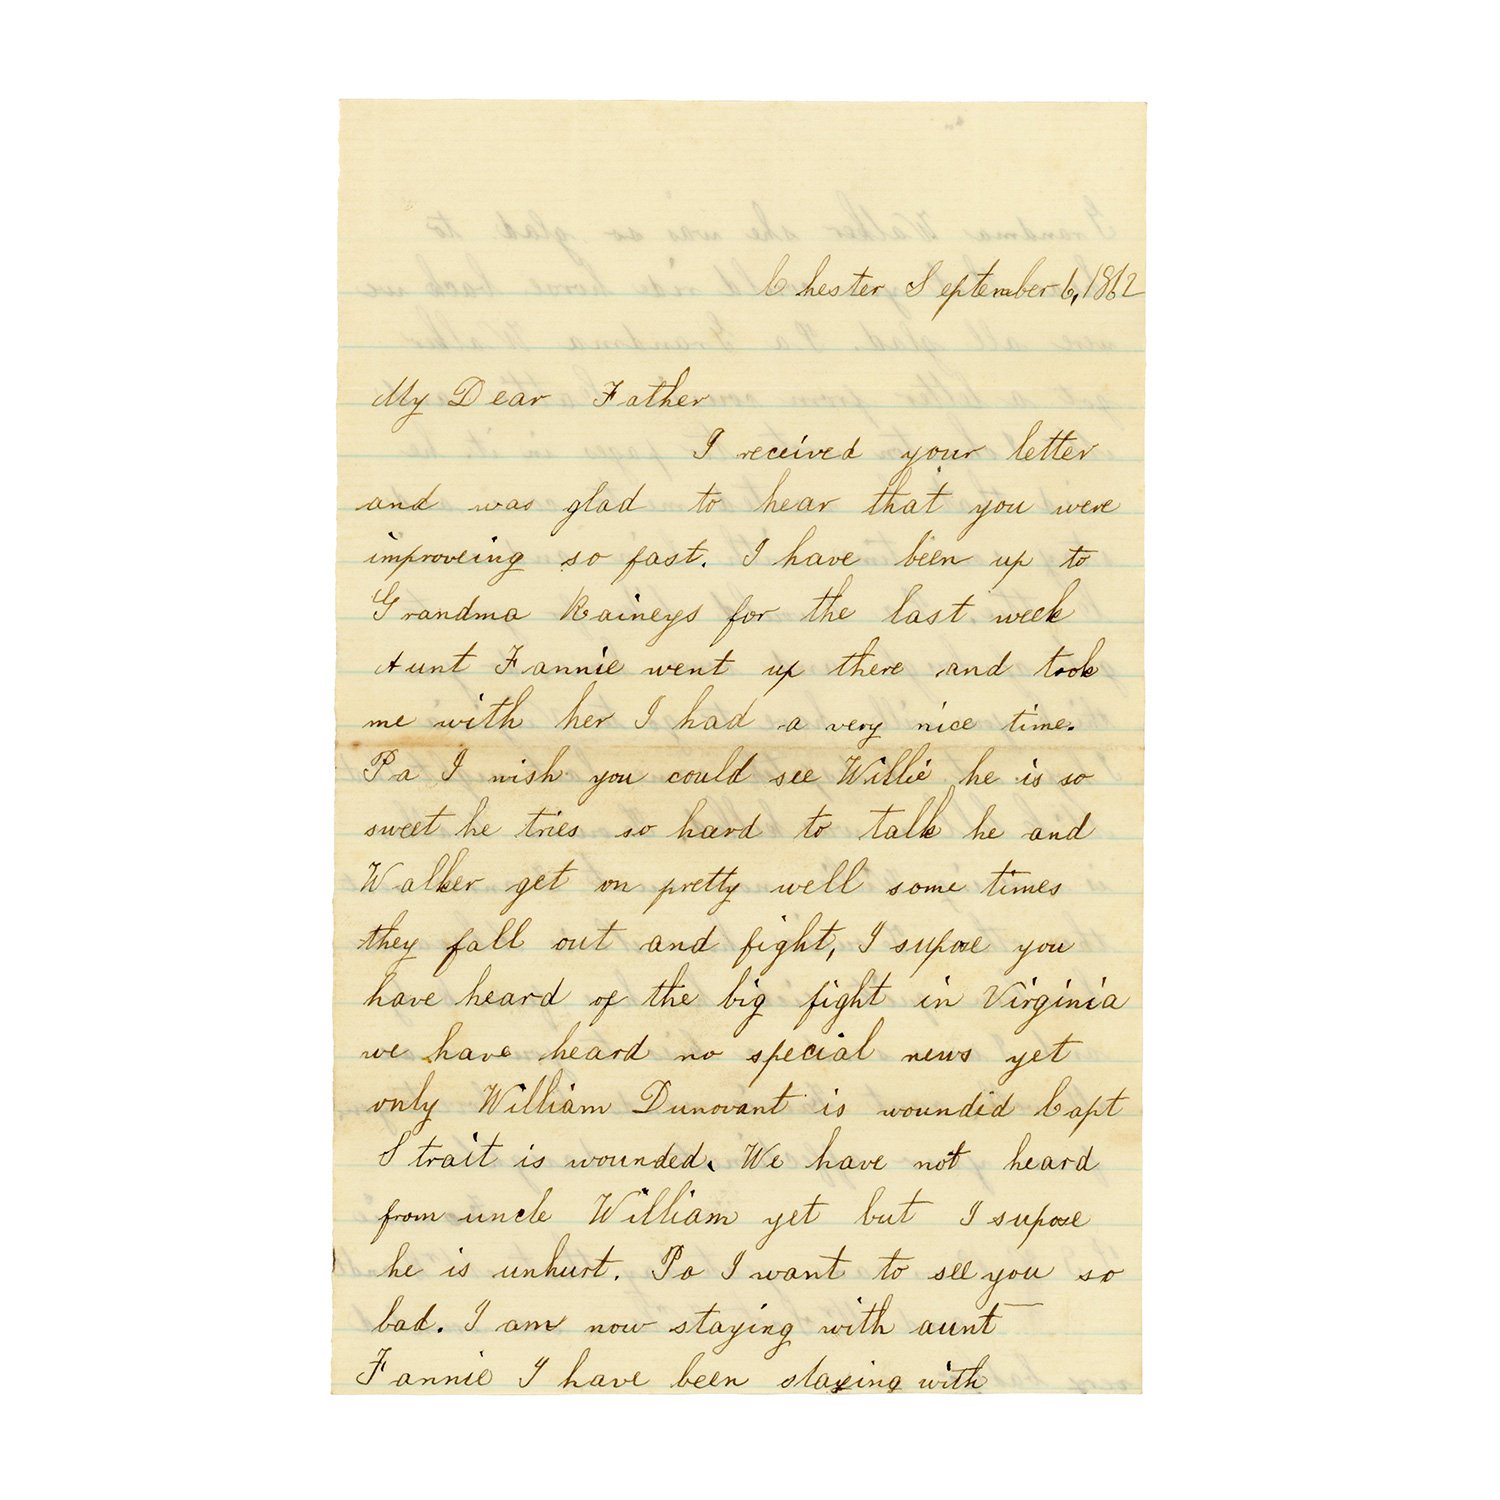 Chester September 6, 1862
My Dear Father
I received your letter
and was glad to hear that you were
improveing so fast. I have been up to
Grandma Raineys for the last week
Aunt Fannie went up there and took
me with her I had a very nice time.
Pa I wish you could see Willie he is so
sweet he tries so hard to talk he and
Walker get on pretty well some times
they fall out and fight, I supose you
have heard of the big fight in Virginia
we have heard no special news yet
only William Dunovant is woundid Capt
Strait is wounded. We have not heard
from uncle William yet but I supose
he is unhurt. Pa I want to see you so
bad. I am now staying with aunt
Fannie I have been staying with